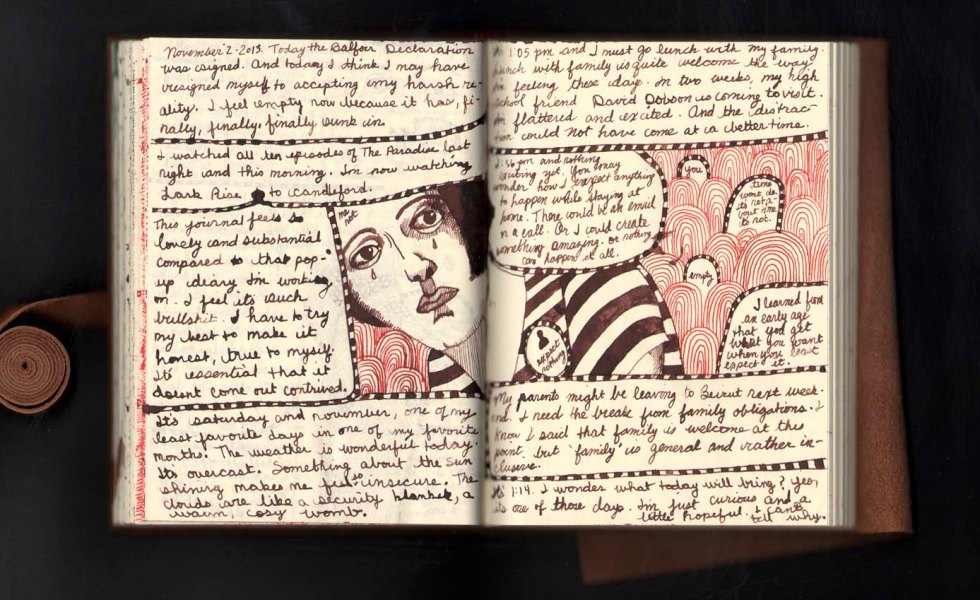 November 2-2013. Today the Balfour Declaration
was signed. And today I think I may have
resigned myself to accepting my harsh re-
ality. I feel empty now because it has, fi-
nally, finally, finally sunk in.
I watched all ten episodes of The Paradise last
night and this morning. I'm now watching
Lark Rise to Candleford.
This journal feels so
lovely and substantial
compared to that pop-
up diary I'm working
on. I feel its such
bullshit. I have to try
my best to make it
honest, true to myself.
It's essential that it
doesnt come out contrived.
me
not
It's saturday and november, one of my
least favorite days in one of my favorite
months. The weather is wonderful today.
Its overcast. Something about the sun
shining makes me feel so insecure. The
clouds are like a security blanket, a
warm, cosy womb.
1:05 pm and I must go lunch with my family.
Lunch with family is quite welcome the way
I'm feeling these days. In two weeks, my high
school friend David Dobson is coming to visit.
I'm flattered and excited. And the distrac-
tion could not have come at a better time.
2:56 pm and nothing
exciting yet. You may
wonder how I expect anything
to happen while staying at
home. There could be an email
or a call. Or I could create
something amazing. or nothing
can happen at all.
you
time
wont do.
its not a-
bout time
to not.
empty
expect
nothing
I learned from
an early age
that you get
what you want
when you least
expect it.
My parents might be leaving to Beirut next week-
end. I need the break from family obligations. I
know I said that family is welcome at this
point, but 'family' is general and rather in-
clusive.
It's 1:14. I wonder what today will bring? Yes,
its one of those days. I'm just curious and a
little hopeful. I can't
tell why.